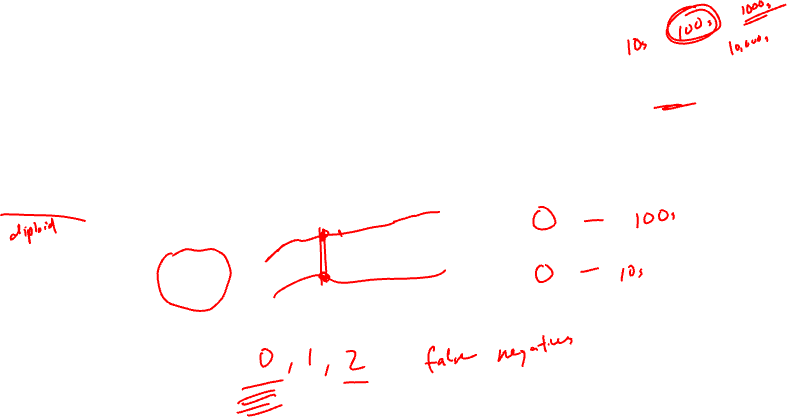 10s 100s 1000s
10,000s
diploid
0 - 100s
0 - 10s
0, 1, 2 false negatives